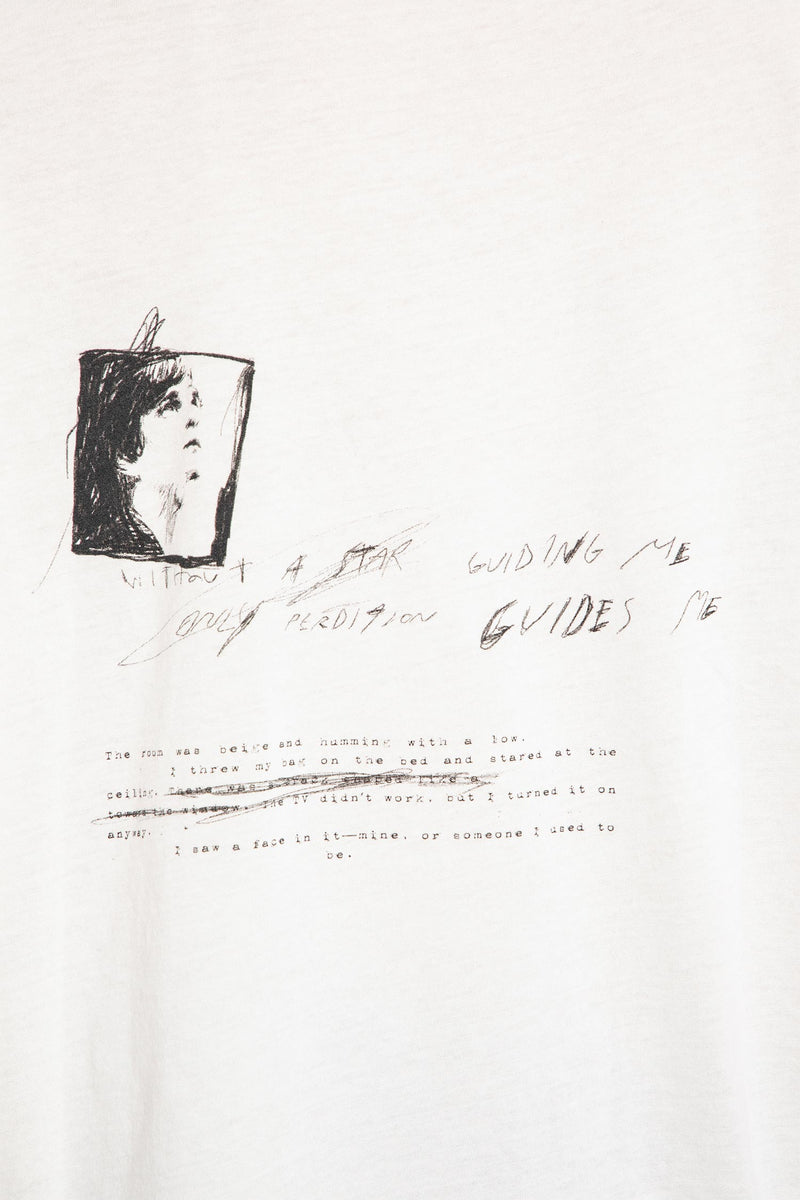 WITHOUT A STAR GUIDING ME
ONLY PERDITION GUIDES ME
The room was beige and humming with a low.
I threw my bag on the bed and stared at the
ceiling. There was a crack shaped like a
towards the window. The TV didn't work. but I turned it on
anyway.
I saw a face in it—mine. or someone I used to
be.